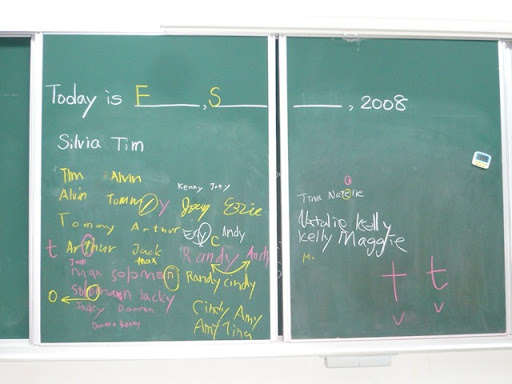 Today is F______, S______ ______, 2008
Silvia Tim
Tim Alvin
Alvin Tommy y Joey Ezzie
Kenny Joey
Tommy Arthur Andy
t Arthur Jack Randy Andy
c
Jack max
max solomon n Randy Cindy
o solomon Jacky
Jacky Darren Cindy Amy
Darren Kenny Amy Tina
a
Tina Natelie
Natalie Kelly
Kelly Maggie
Ma
t t
v v